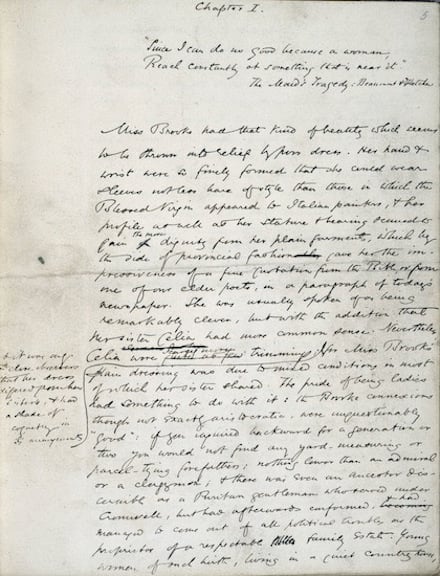 Chapter I.
5
"Since I can do no good because a woman,
Reach constantly at something that is near it."
The Maid's Tragedy: Beaumont & Fletcher
Miss Brooke had that kind of beauty which seems
to be thrown into relief by poor dress. Her hand &
wrist were so finely formed that she could wear
sleeves not less bare of style than those in which the
Blessed Virgin appeared to Italian painters, & her
profile as well as her stature & bearing seemed to
gain the more dignity from her plain garments, which by
the side of provincial fashion gave her the im-
pressiveness of a fine quotation from the Bible, or from
one of our elder poets, in a paragraph of today's
newspaper. She was usually spoken of as being
remarkably clever, but with the addition that
her sister Celia had more common sense. Nevertheless
Celia wore scarcely more trimmings; for Miss Brooke's
plain dressing was due to mixed conditions, in most
of which her sister shared. The pride of being ladies
had something to do with it: the Brooke connexions
though not exactly aristocratic, were unquestionably
"good": if you inquired backward for a generation or
two you would not find any yard-measuring or
parcel-tying forefathers: nothing lower than an admiral
or a clergyman; & there was even an ancestor dis-
cernible as a Puritan gentleman who served under
Cromwell, but had afterwards conformed, & had
managed to come out of all political troubles as the
proprietor of a respectable family estate. Young
women of such birth, living in a quiet country-house,
& it was only
to close observers
that her dress
differed from her
sister's, & had
a shade of
coquetry in
its arrangements